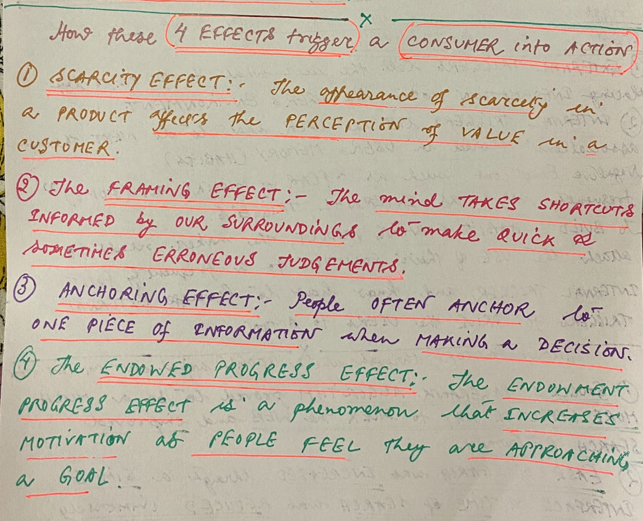 x
How these 4 EFFECTS trigger a CONSUMER into ACTION
① SCARCITY EFFECT:- The appearance of scarcity in
a PRODUCT affects the PERCEPTION of VALUE in a
CUSTOMER.
② The FRAMING EFFECT:- The mind TAKES SHORTCUTS
INFORMED by OUR SURROUNDINGS to make QUICK &
SOMETIMES ERRONEOUS JUDGEMENTS.
③ ANCHORING EFFECT:- People OFTEN ANCHOR to
ONE PIECE of INFORMATION when MAKING a DECISION.
④ The ENDOWED PROGRESS EFFECT:- The ENDOWMENT
PROGRESS EFFECT is a phenomenon that INCREASES
MOTIVATION as PEOPLE FEEL they are APPROACHING
a GOAL.